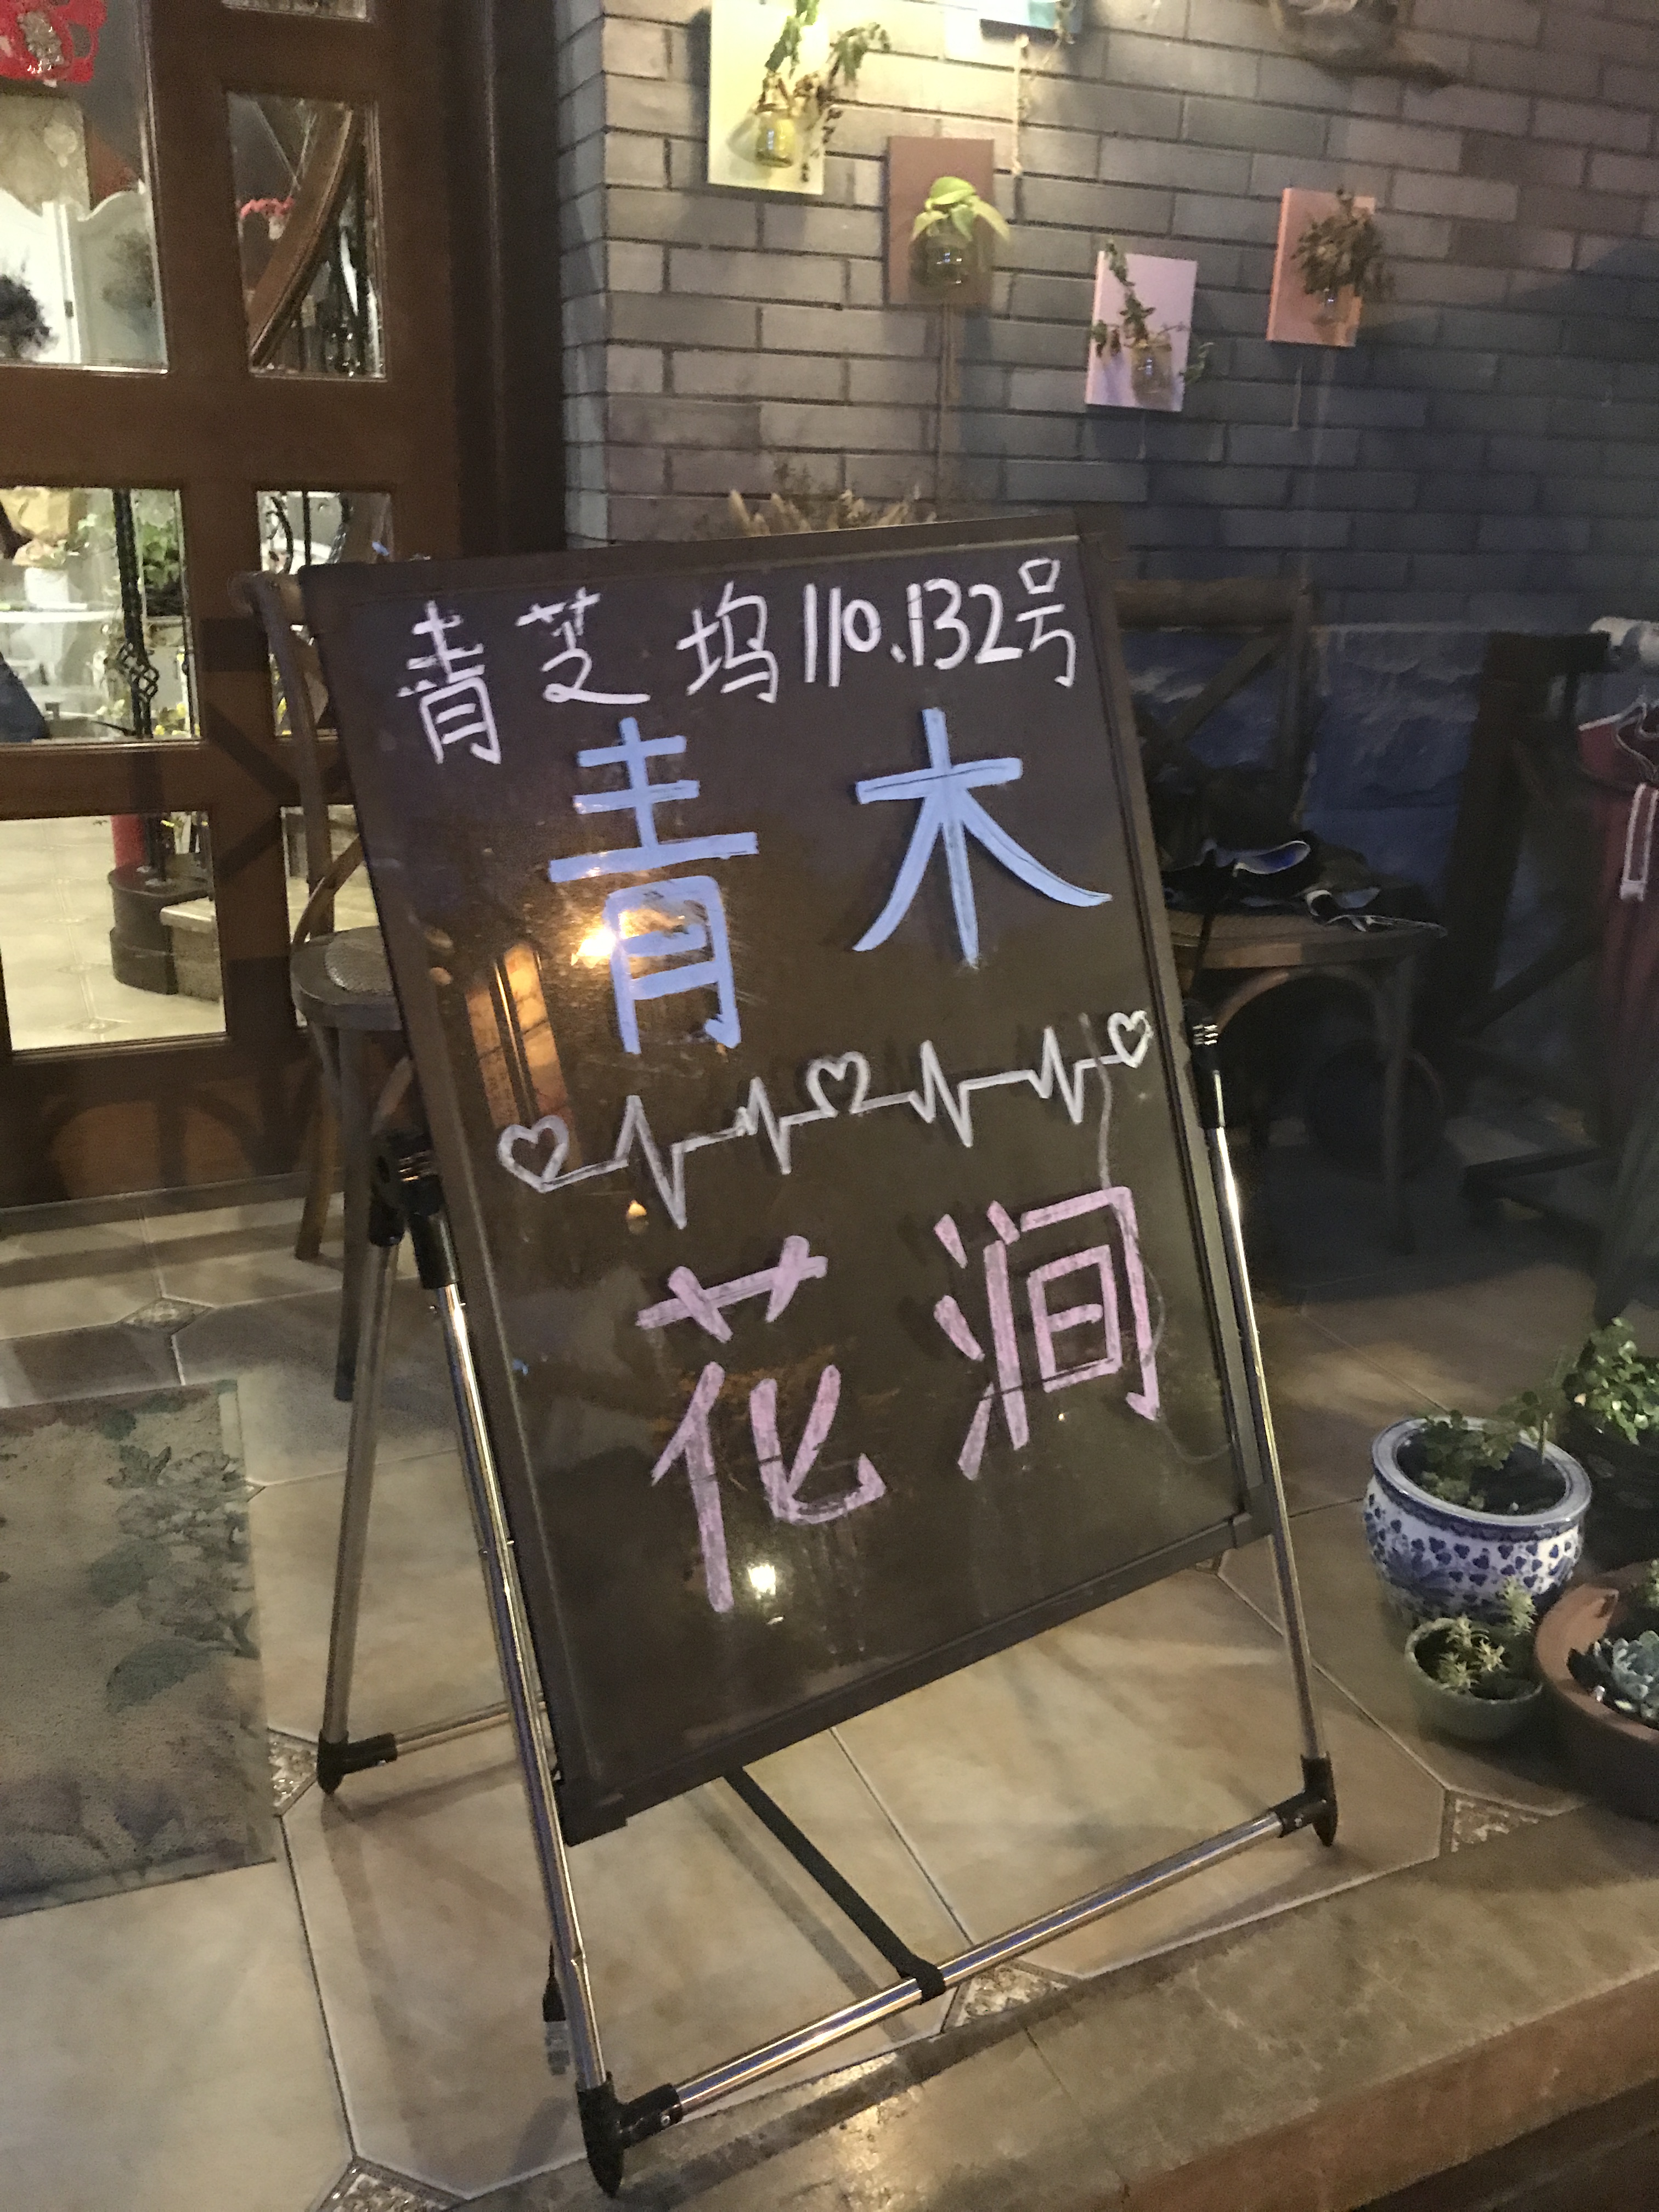 青芝坞110.132号
青木
花涧